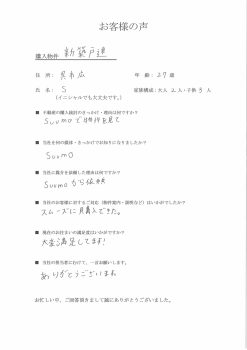 お客様の声
購入物件 新築戸建
住 所: 呉市広 年 齢: 27 歳
氏 名: S 家族構成:大人 2 人・子供 3 人
(イニシャルでも大丈夫です。)
■ 不動産の購入検討のきっかけ・理由は何ですか?
Suumoで物件を見て
■ 当社を何の媒体・きっかけでお知りになりましたか?
Suumo
■ 当社に仲介を依頼した理由は何ですか?
Suumoから依頼
■ 当社のお客様に対するご対応(物件案内・説明など)はいかがでしたか?
スムーズに見学できた。
■ 現在のお住まいの満足度はいかがですか?
大変満足してます!
■ 当社の担当者にむけて、一言お願いします。
ありがとうございます
お忙しい中、ご回答頂きまして誠にありがとうございました。